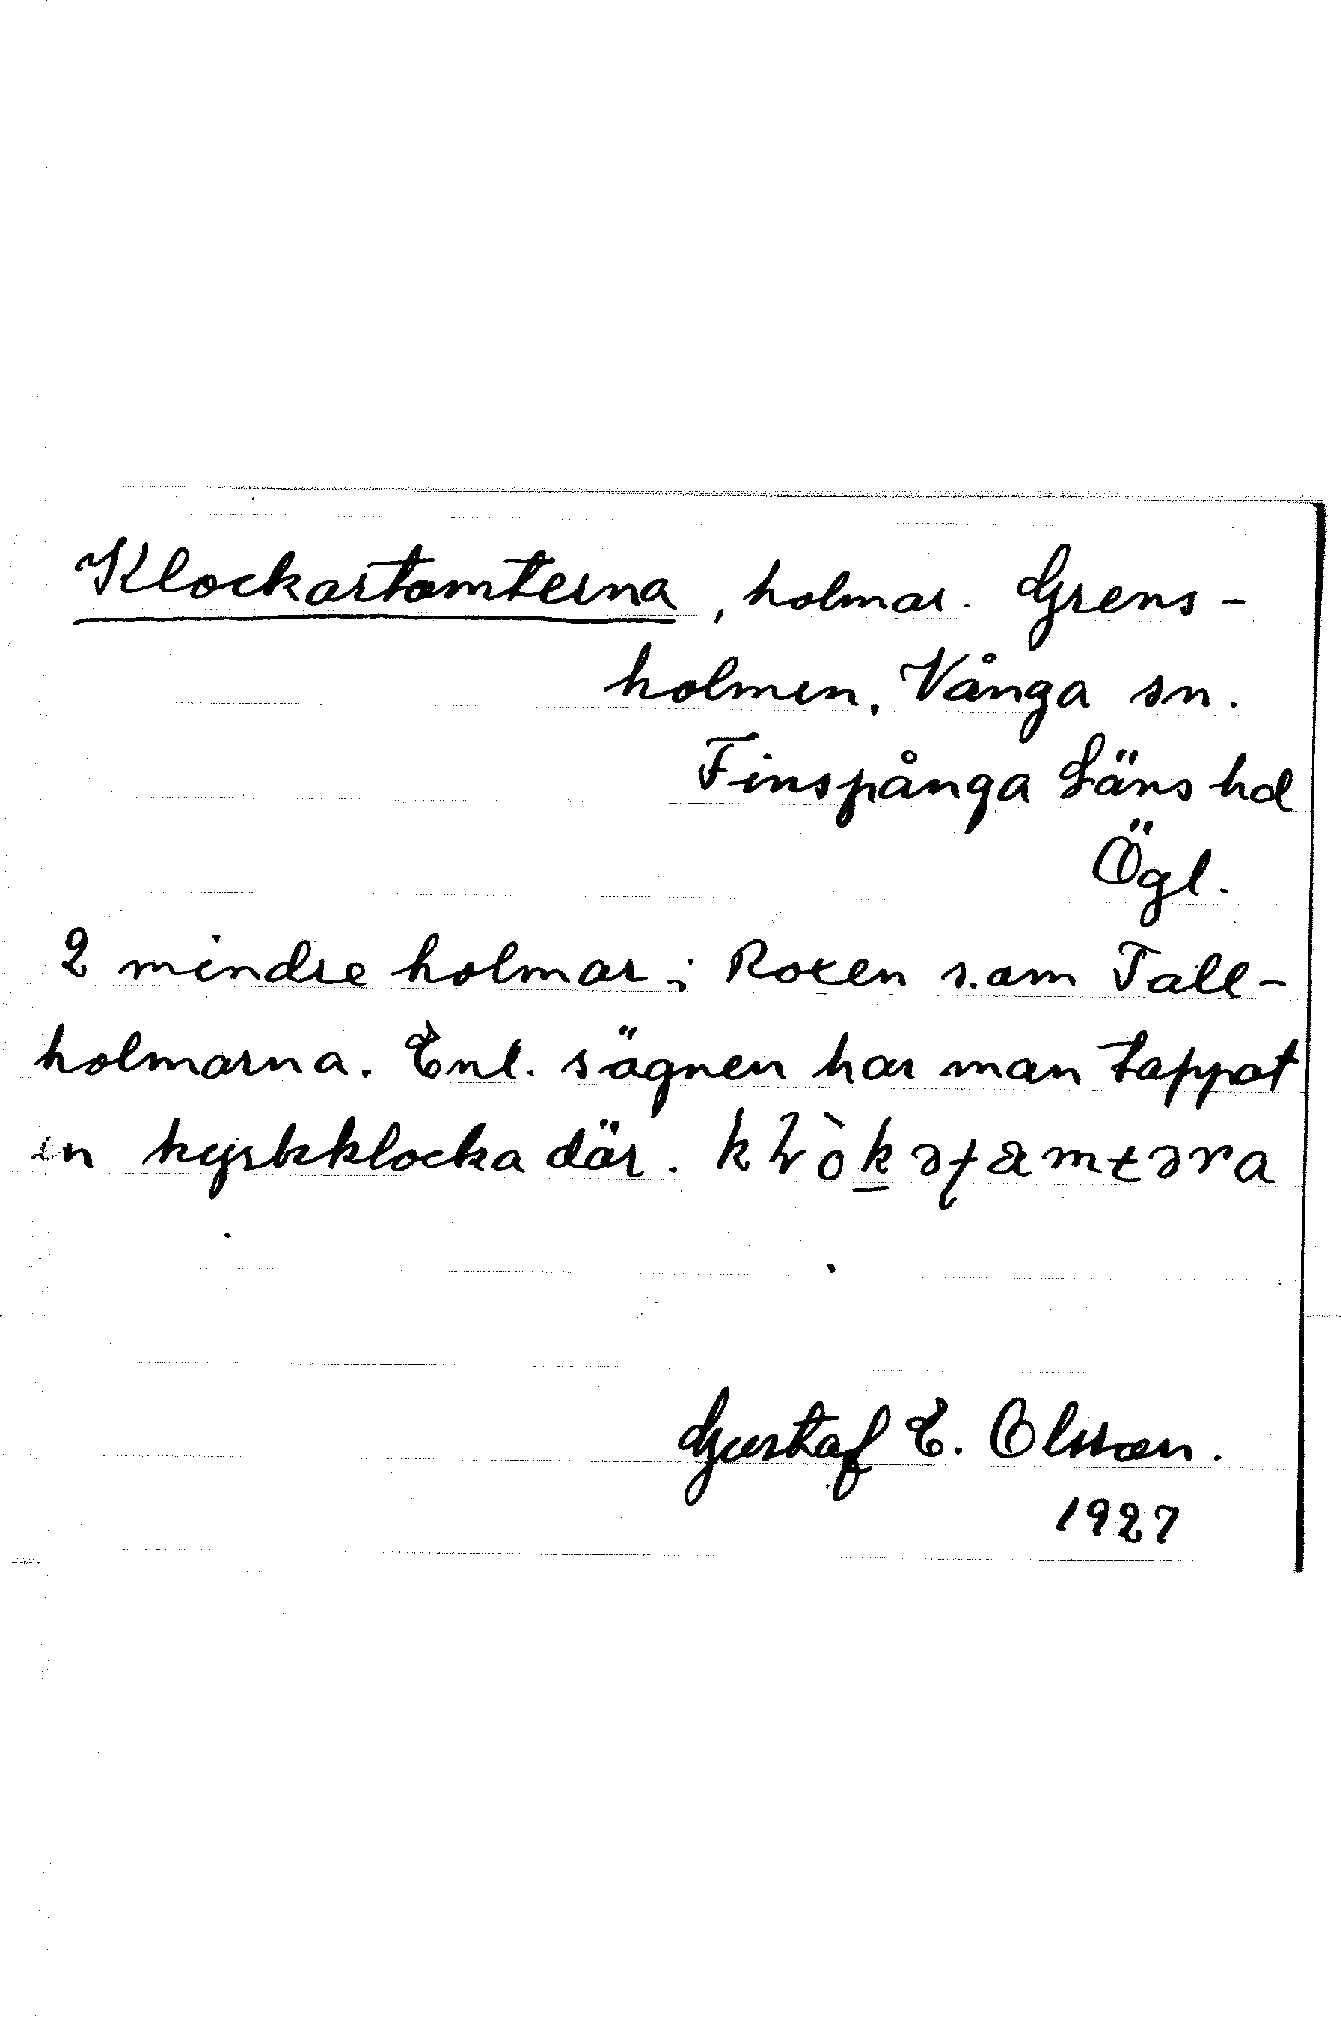 Klockartomterna, holmar. Grens-
holmen, Vånga sn.
Finspånga Läns hd
Ögl.
2 mindre holmar i Roxen s.om Tall-
holmarna. Enl. sägnen har man tappat
en kyrkklocka där.
Gustaf E. Olsson.
1927